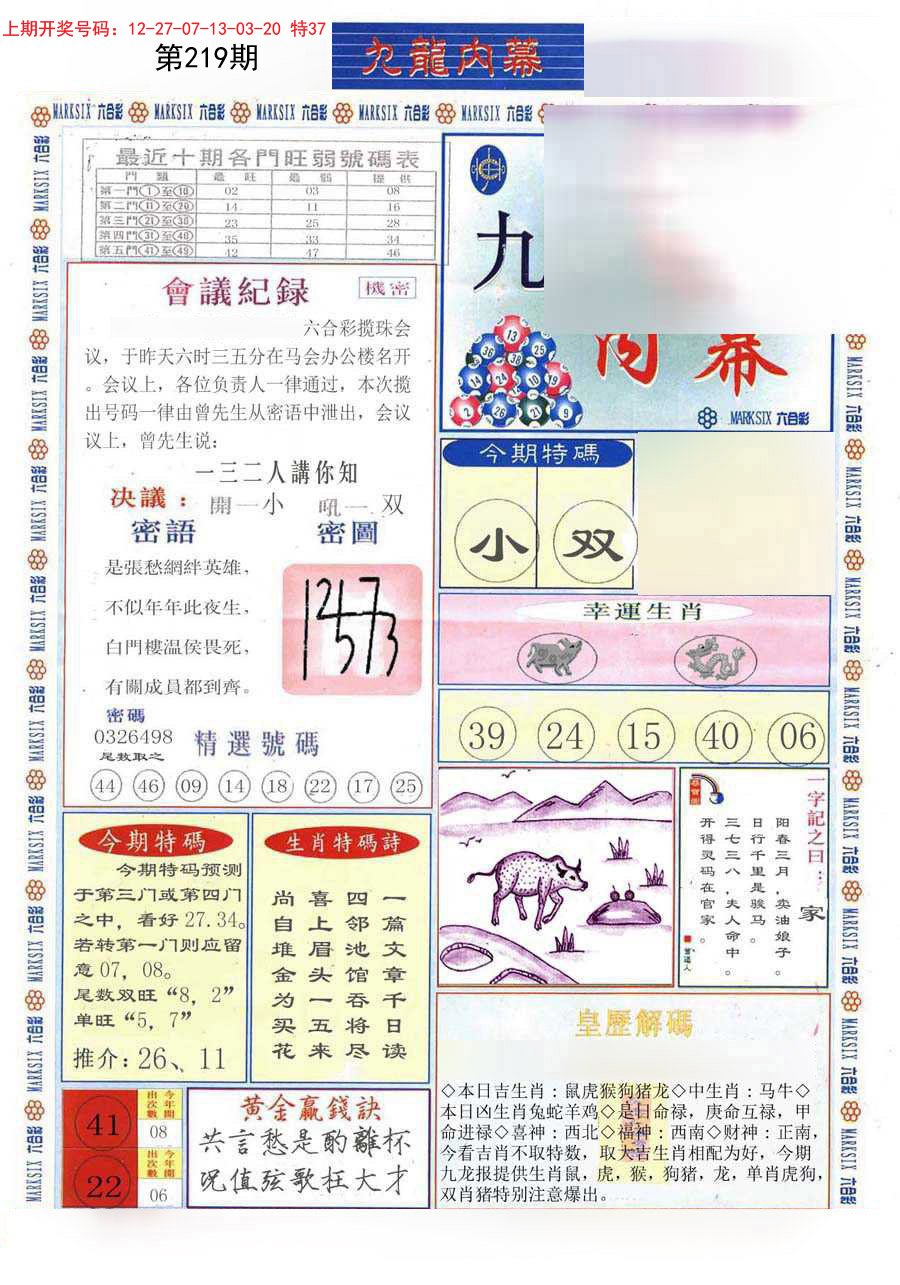 上期开奖号码：12-27-07-13-03-20 特37
第219期
九龍内幕
MARKSIX 六合彩 MARKSIX 六合彩 MARKSIX 六合彩 MARKSIX 六合彩 MARKSIX 六合彩
最近十期各門旺弱號碼表
門 類 最 旺 最 弱 提 供
第一門①至⑩ 02 03 08
第二門⑪至⑳ 14 11 16
第三門㉑至㉚ 23 25 28
第四門㉛至㊵ 35 33 34
第五門㊶至㊾ 42 47 46
會議紀録 機密
六合彩揽珠会
议，于昨天六时三五分在马会办公楼名开
。会议上，各位负责人一律通过，本次揽
出号码一律由曾先生从密语中泄出，会议
议上，曾先生说：
一三二人講你知
决議：開一小 吼一双
密語 密圖
是張愁網絆英雄，
不似年年此夜生，
白門樓温侯畏死，
有關成員都到齊。
密碼
0326498
尾数取之
精選號碼
44 46 09 14 18 22 17 25
九
内幕
13
36 38 25
24 10 19
2 26 21 9
MARKSIX 六合彩
今期特碼
小 双
幸運生肖
39 24 15 40 06
一字記之曰：家
阳春三月，卖油娘子。
日行千里是骏马。
三七三八，夫人命中。
开得灵码在官家。
今期特碼
今期特码预测
于第三门或第四门
之中，看好 27.34。
若转第一门则应留
意 07，08。
尾数双旺“8，2”
单旺“5，7”
推介：26、11
生肖特碼詩
一篇文章千日读
四邻池馆吞将尽
喜上眉头一五来
尚自堆金为买花
皇歷解碼
◇本日吉生肖：鼠虎猴狗猪龙◇中生肖：马牛◇
本日凶生肖兔蛇羊鸡◇是日命禄，庚命互禄，甲
命进禄◇喜神：西北◇福神：西南◇财神：正南，
今看吉肖不取特数，取大吉生肖相配为好，今期
九龙报提供生肖鼠，虎，猴，狗猪，龙，单肖虎狗，
双肖猪特别注意爆出。
41 今年開出次數 08
22 今年開出次數 06
黄金赢錢訣
共言愁是酌離杯
况值弦歌枉大才